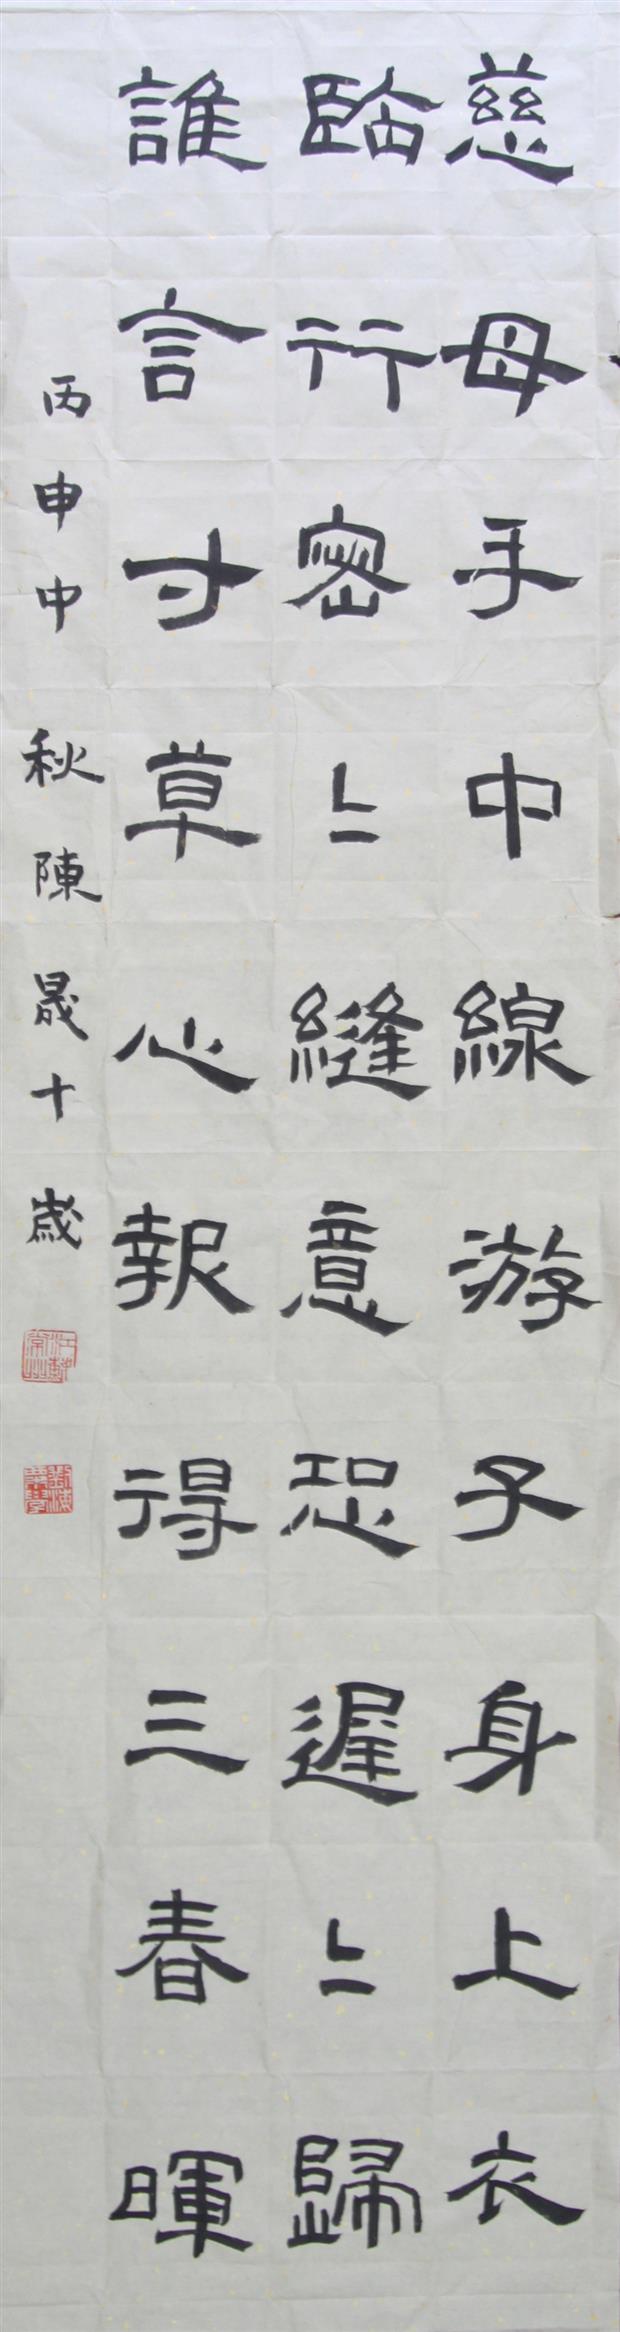 慈母手中線游子身上衣
臨行密〻縫意恐遲〻歸
誰言寸草心報得三春暉
丙申中秋陳晟十歲